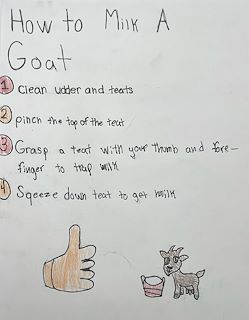 How to Milk A
Goat
1 Clean udder and teats
2 pinch the top of the teat
3 Grasp a teat with your thumb and fore-
finger to trap milk
4 Sqeeze down teat to get milk